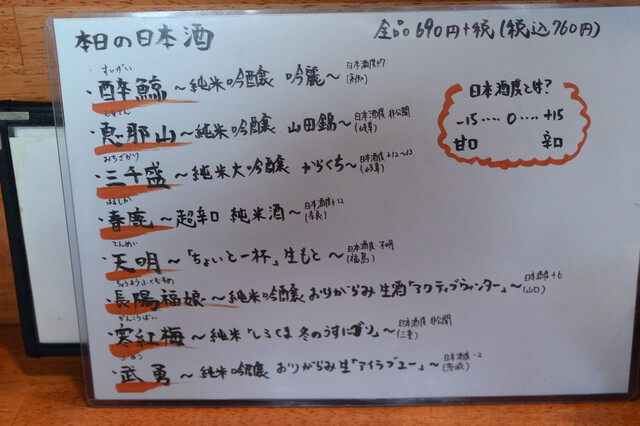 本日の日本酒
全品690円+税(税込760円)
すいげい
・酔鯨～純米吟醸 吟麗～ 日本酒度+7
(高知)
・恵那山～純米吟醸 山田錦～ 日本酒度 非公開
(岐阜)
みちざかり
・三千盛～純米大吟醸 からくち～ 日本酒度+12～13
(岐阜)
はるしか
・春鹿～超辛口 純米酒～ 日本酒度+12
(奈良)
てんめい
・天明～「ちょいと一杯」生もと～ 日本酒度 不明
(福島)
ちょうようふくむすめ
・長陽福娘～純米吟醸 おりがらみ 生酒「アクティブウィンター」～ 日本酒度+6
(山口)
かんこうばい
・寒紅梅～純米「しろくま 冬のうすにごり」～ 日本酒度 非公開
(三重)
ぶゆう
・武勇～純米吟醸 おりがらみ生「アイラブユー」～ 日本酒度-2
(茨城)
日本酒度とは?
-15‥‥0‥‥+15
甘口 辛口